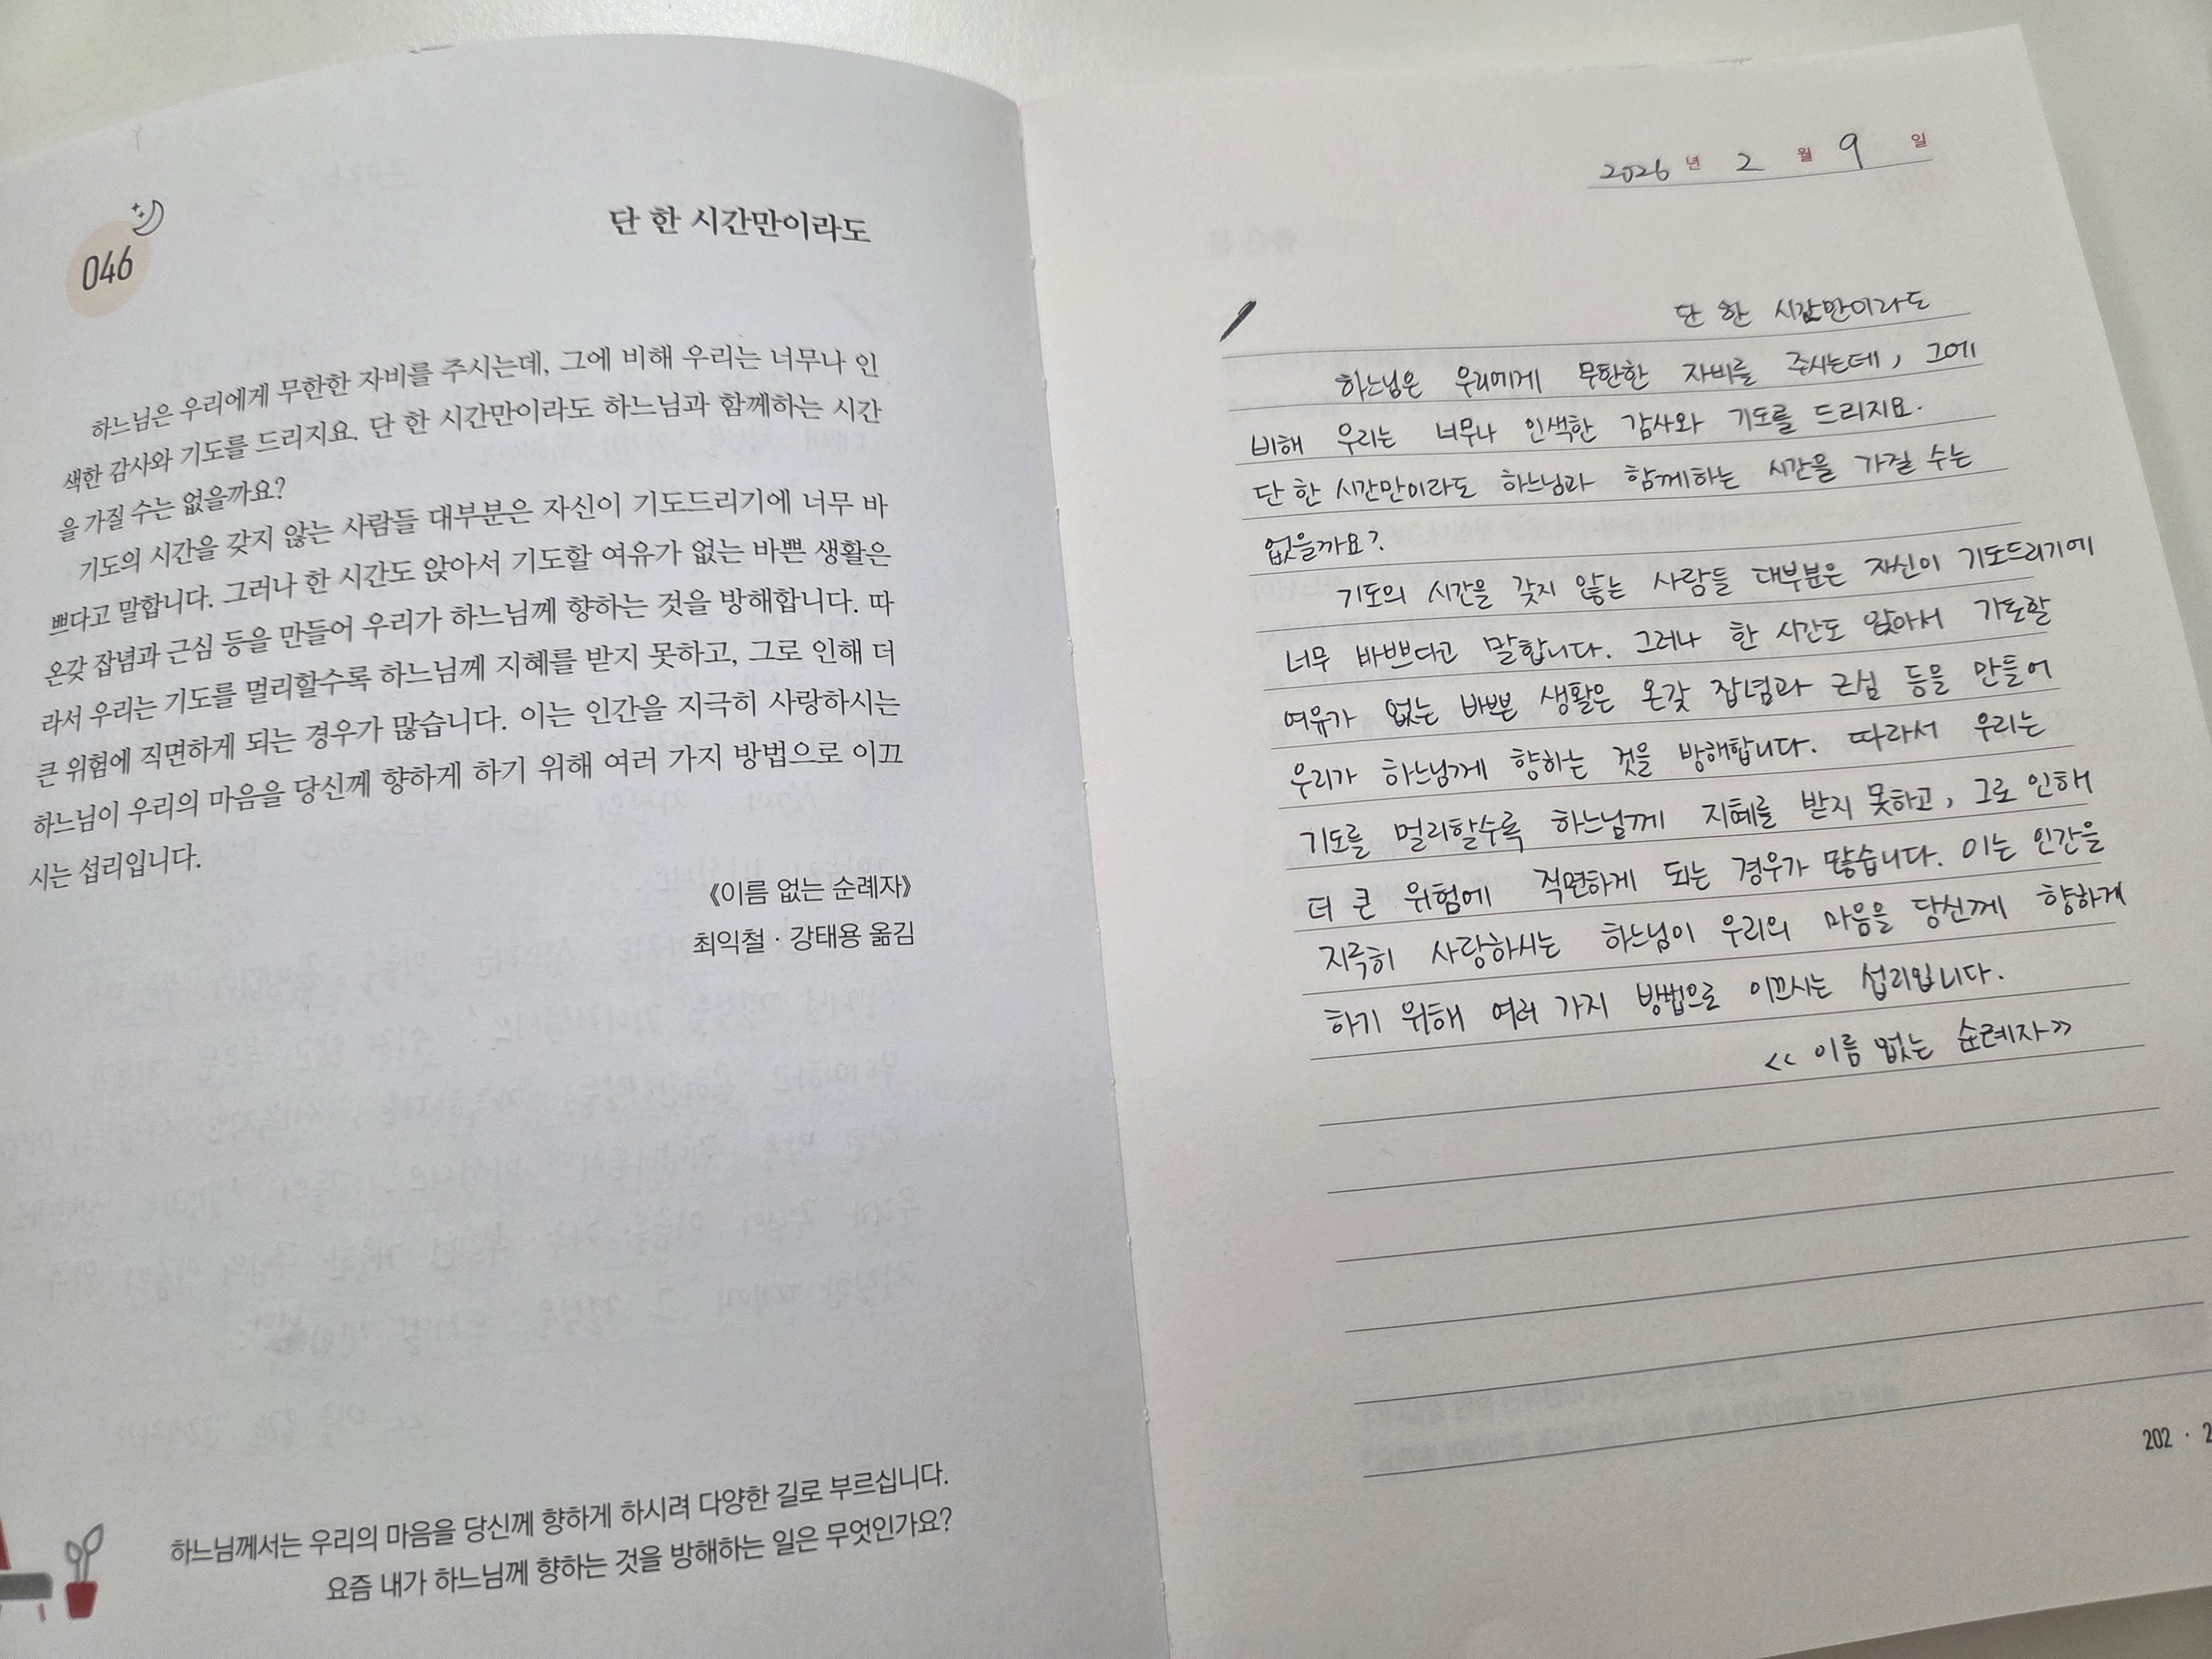 046
단 한 시간만이라도
하느님은 우리에게 무한한 자비를 주시는데, 그에 비해 우리는 너무나 인
색한 감사와 기도를 드리지요. 단 한 시간만이라도 하느님과 함께하는 시간
을 가질 수는 없을까요?
기도의 시간을 갖지 않는 사람들 대부분은 자신이 기도드리기에 너무 바
쁘다고 말합니다. 그러나 한 시간도 앉아서 기도할 여유가 없는 바쁜 생활은
온갖 잡념과 근심 등을 만들어 우리가 하느님께 향하는 것을 방해합니다. 따
라서 우리는 기도를 멀리할수록 하느님께 지혜를 받지 못하고, 그로 인해 더
큰 위험에 직면하게 되는 경우가 많습니다. 이는 인간을 지극히 사랑하시는
하느님이 우리의 마음을 당신께 향하게 하기 위해 여러 가지 방법으로 이끄
시는 섭리입니다.
《이름 없는 순례자》
최익철 · 강태용 옮김
하느님께서는 우리의 마음을 당신께 향하게 하시려 다양한 길로 부르십니다.
요즘 내가 하느님께 향하는 것을 방해하는 일은 무엇인가요?
2026 년 2 월 9 일
단 한 시간만이라도
하느님은 우리에게 무한한 자비를 주시는데, 그에
비해 우리는 너무나 인색한 감사와 기도를 드리지요.
단 한 시간만이라도 하느님과 함께하는 시간을 가질 수는
없을까요?
기도의 시간을 갖지 않는 사람들 대부분은 자신이 기도드리기에
너무 바쁘다고 말합니다. 그러나 한 시간도 앉아서 기도할
여유가 없는 바쁜 생활은 온갖 잡념과 근심 등을 만들어
우리가 하느님께 향하는 것을 방해합니다. 따라서 우리는
기도를 멀리할수록 하느님께 지혜를 받지 못하고, 그로 인해
더 큰 위험에 직면하게 되는 경우가 많습니다. 이는 인간을
지극히 사랑하시는 하느님이 우리의 마음을 당신께 향하게
하기 위해 여러 가지 방법으로 이끄시는 섭리입니다.
<< 이름 없는 순례자>>
202 · 2